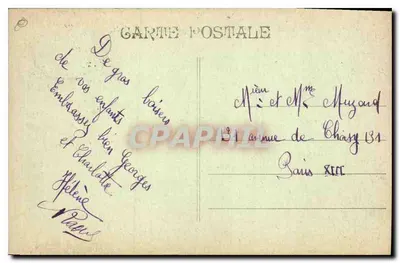 CARTE POSTALE
De gros baisers
de vos enfants
Embrassez bien Georges
et Charlotte
Hélène
Raoul
Mr et Mme Muzard
31 avenue de Choisy 131
Paris XIII
CPARAMA